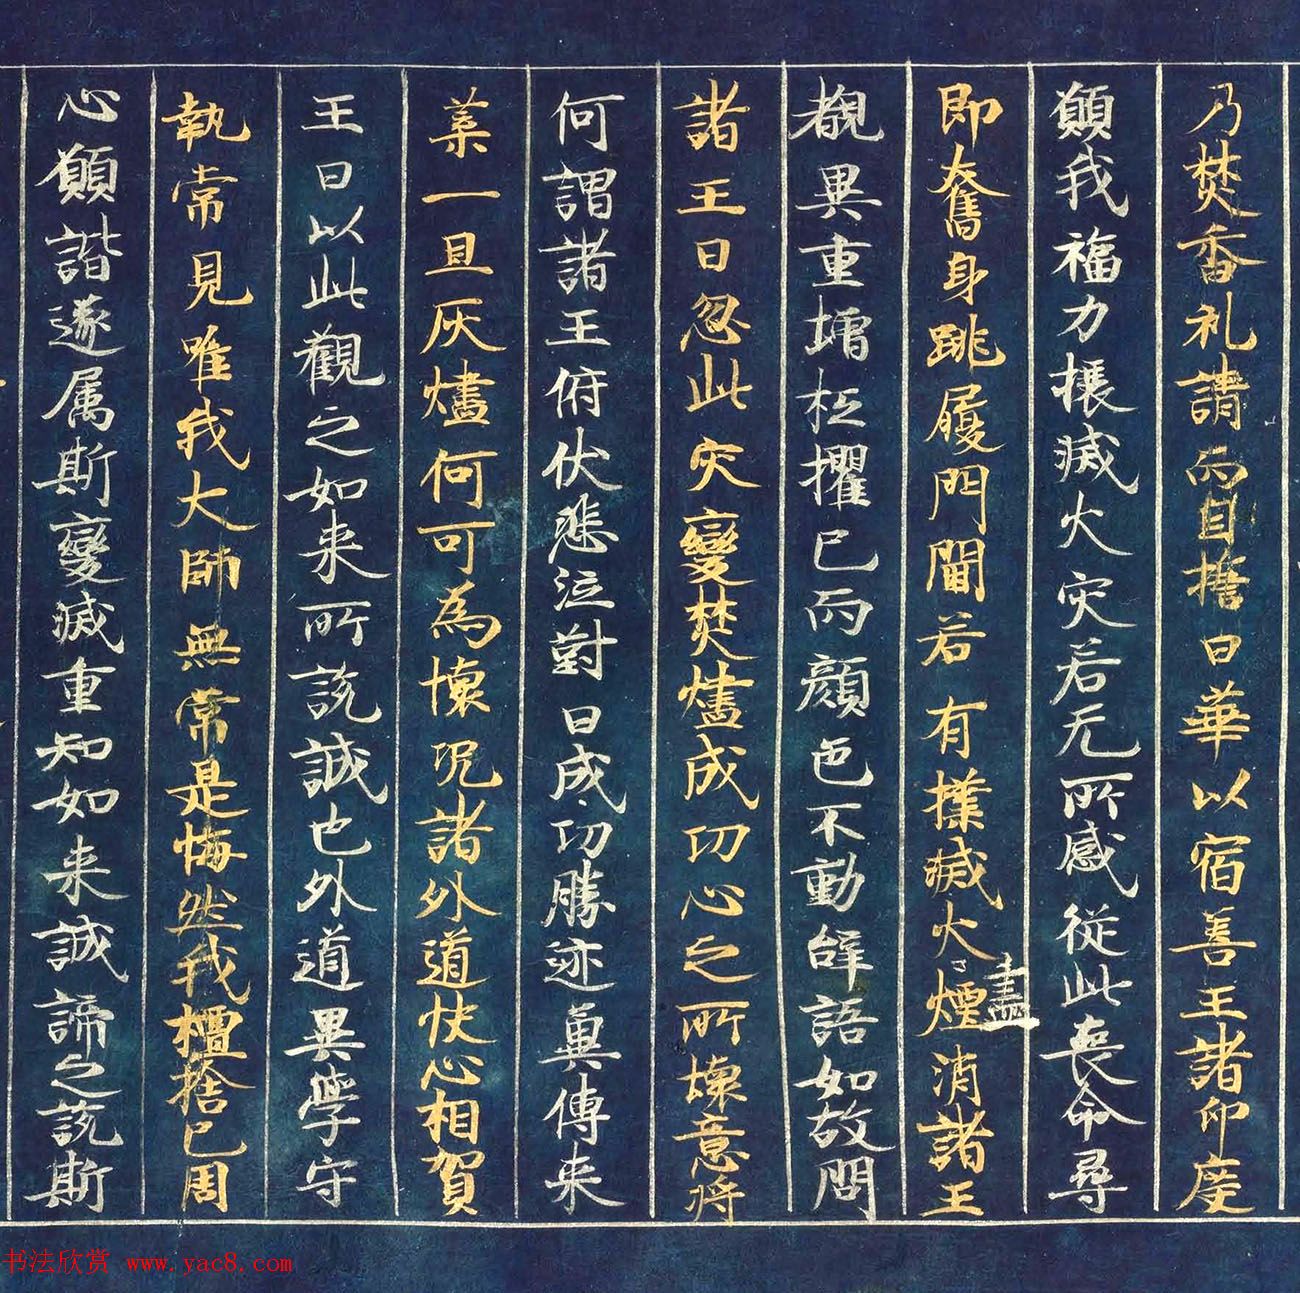 乃焚香礼請而自擔曰華以宿善王諸印度
願我福力攘滅火灾若无所感從此喪命尋
即奮身跳履門閫若有撲滅火煙盡消諸王
覩異重增枉懼已而顔色不動辞語如故問
諸王曰忽此灾變焚燼成功心之所悚意将
何謂諸王俯伏悲泣對曰成功勝迹兾傳来
葉一旦灰燼何可為懐况諸外道快心相賀
王曰以此觀之如来所説誠也外道異學守
執常見唯我大師無常是悔然我檀捨已周
心願諧遂属斯變滅重知如来誠諦之説斯
书法欣赏 www.yac8.com